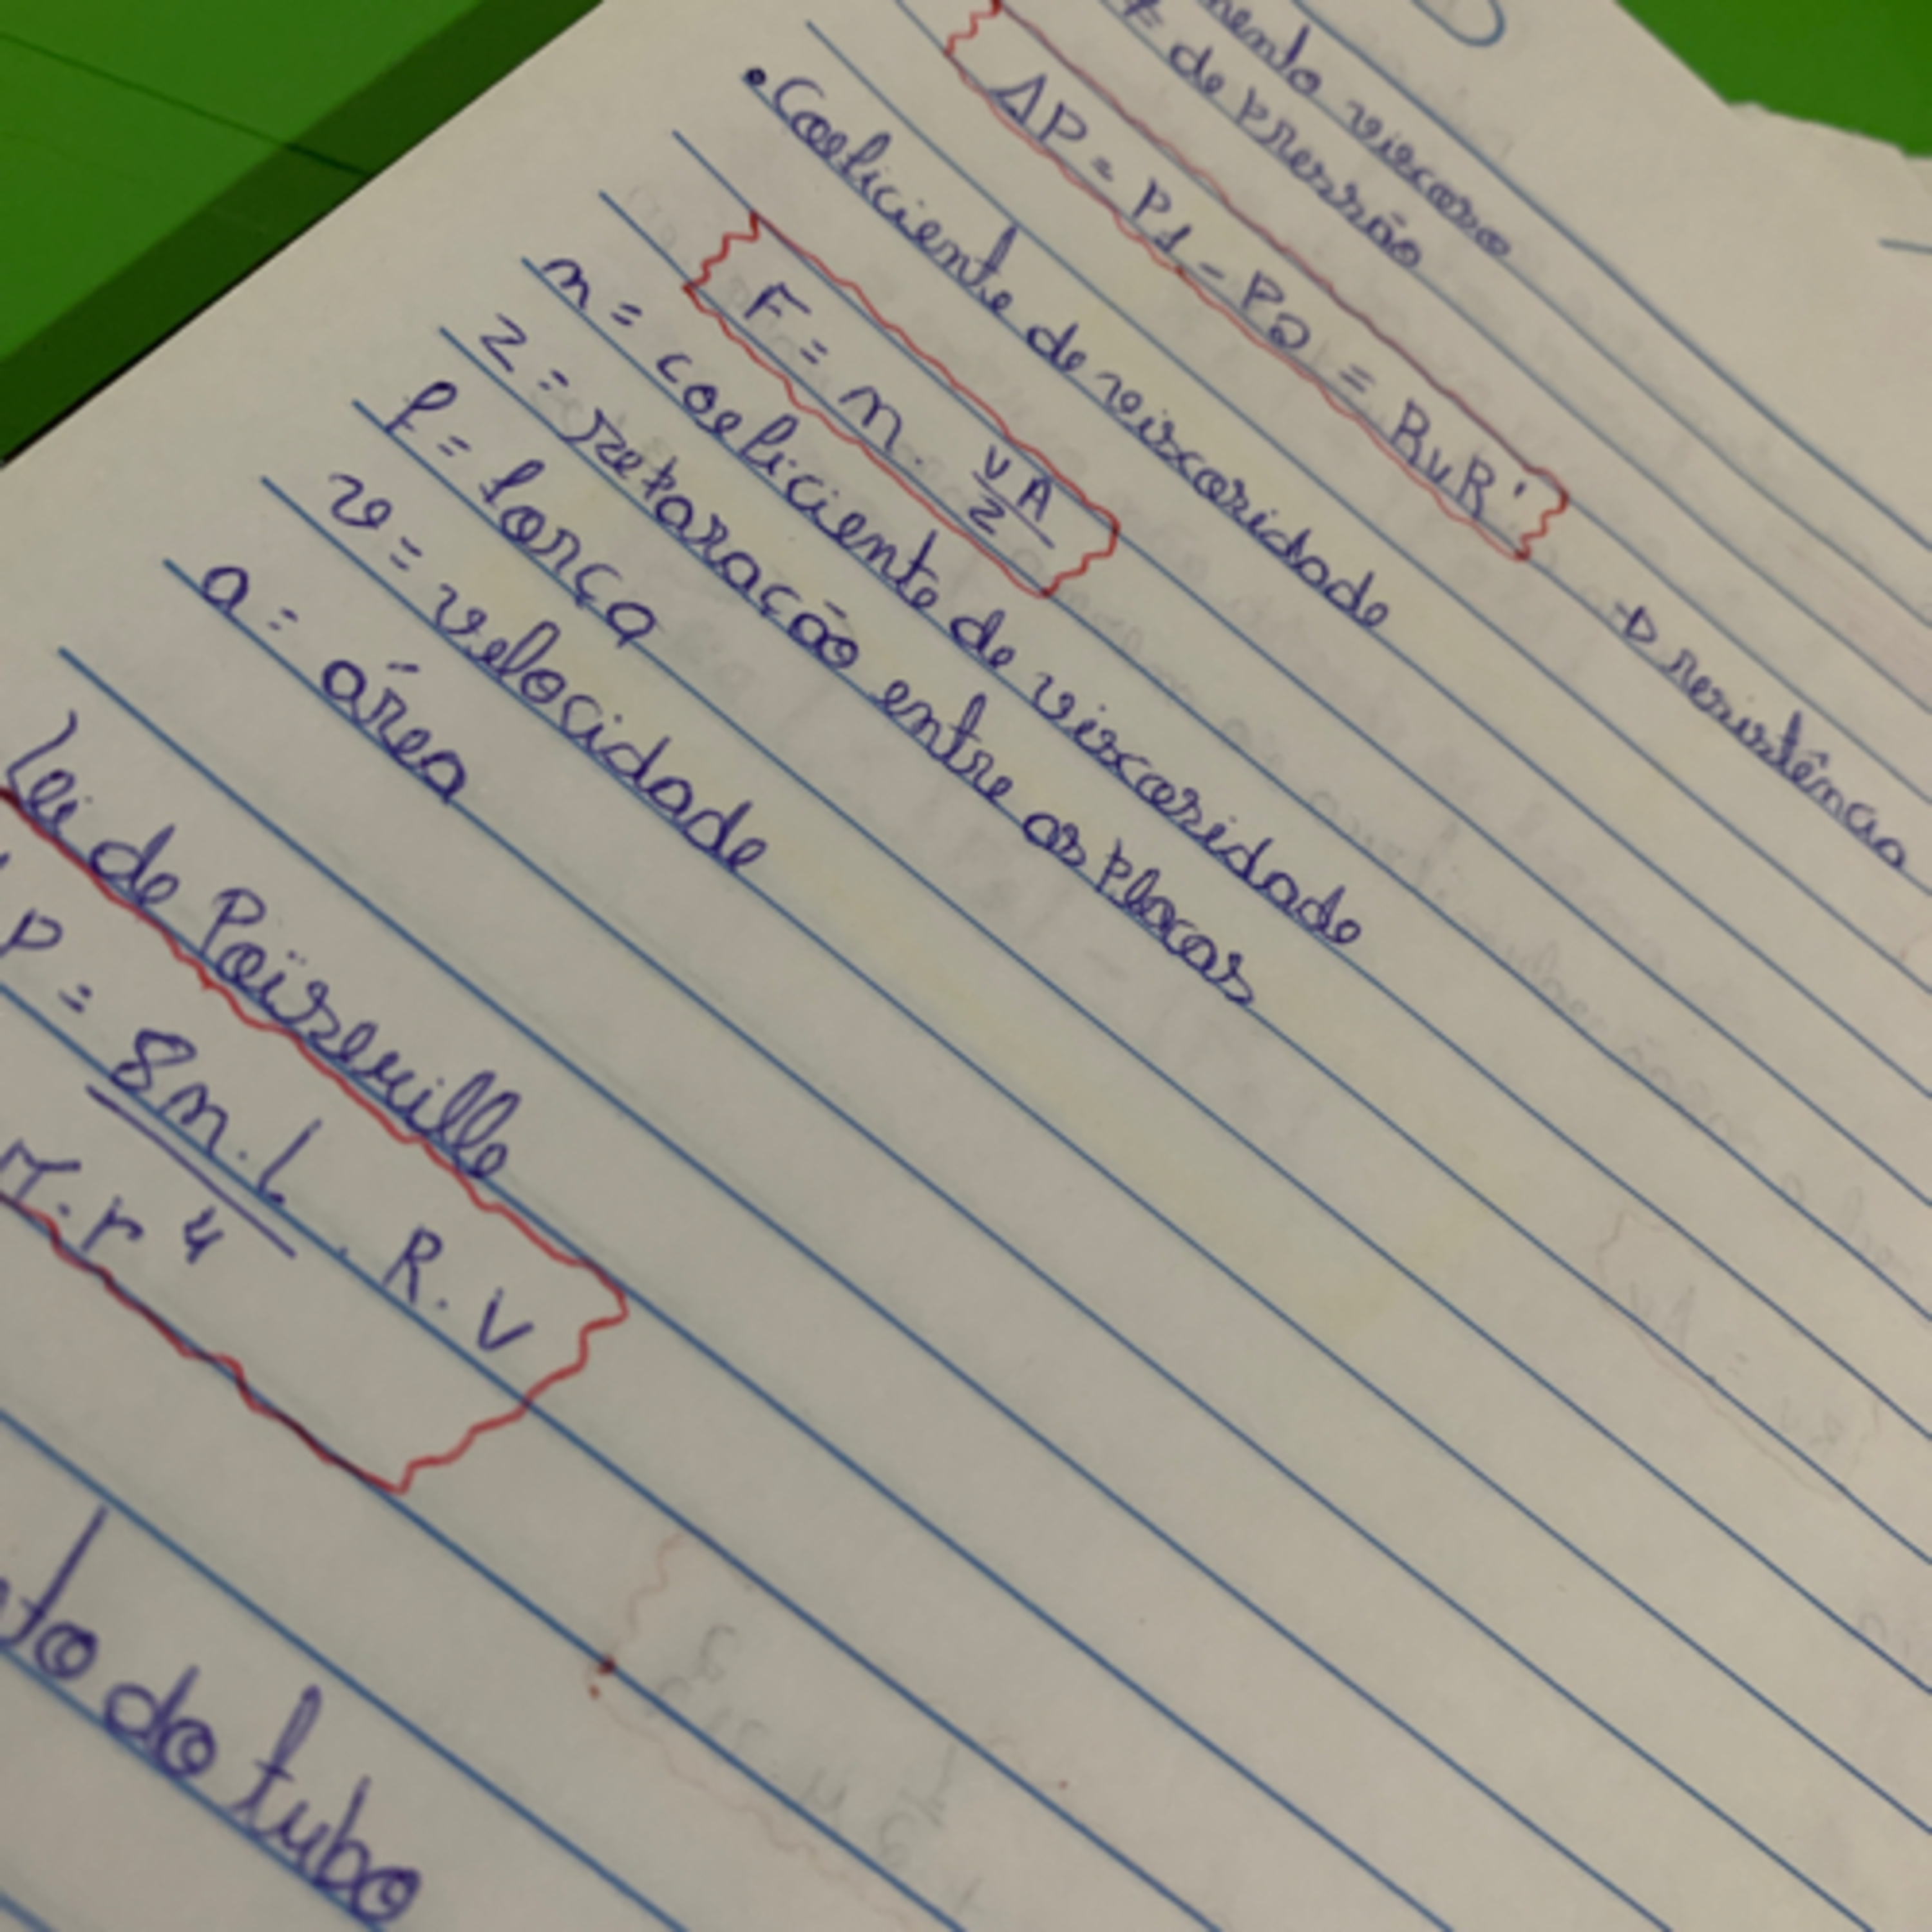 viscoso
≠ de pressão
ΔP = P1 - P2 = RvR' → resistência
• Coeficiente de viscosidade
F = n. vA/z
n = coeficiente de viscosidade
z = separação entre as placas
f = força
v = velocidade
a = área
Lei de Poiseuille
P = 8n.l/π.r⁴ . R.V
do tubo